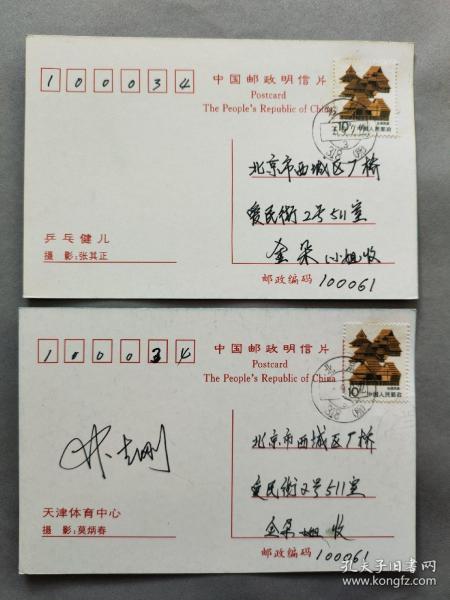 100034
中国邮政明信片
Postcard
The People's Republic of China
10分
中国人民邮政
北京市西城区厂桥
爱民街2号511室
金朵小姐收
乒乓健儿
摄 影:张其正
邮政编码 100061
100034
中国邮政明信片
Postcard
The People's Republic of China
10分
中国人民邮政
北京市西城区厂桥
爱民街2号511室
金朵 收
天津体育中心
摄 影:莫炳春
邮政编码 100061
孔夫子旧书网
www.kongfz.com